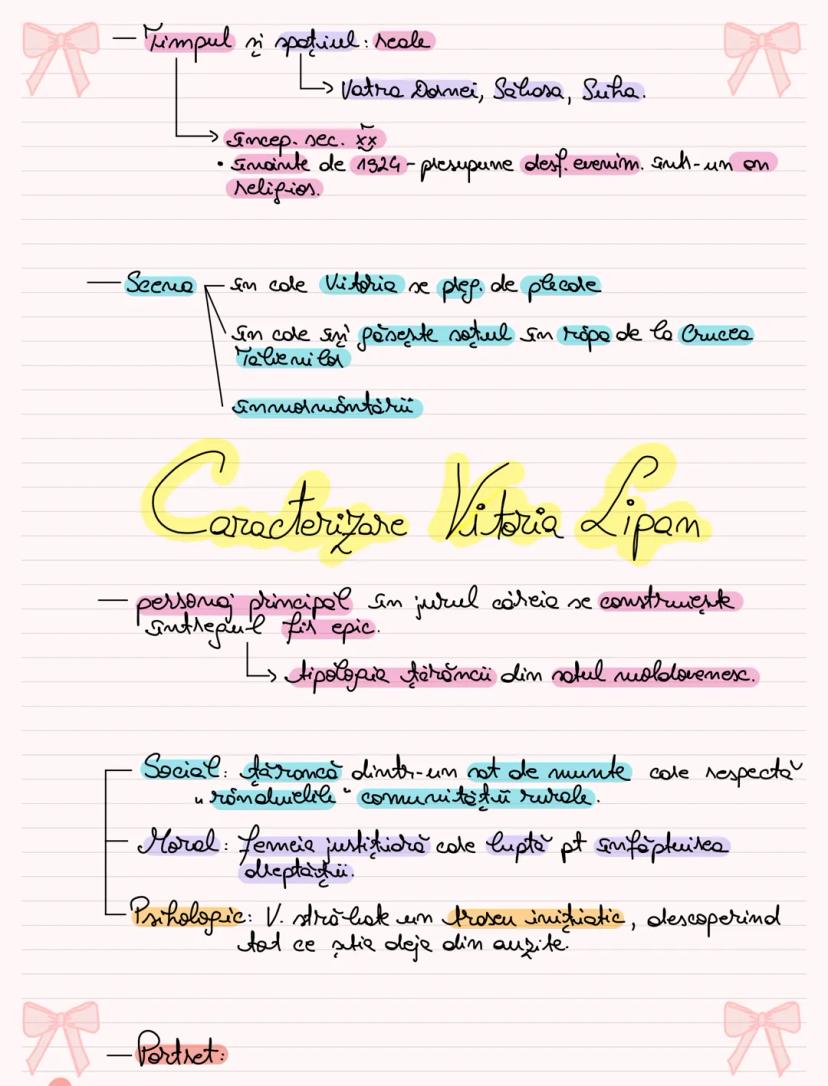 — Timpul și spațiul: reale
Vatra Dornei, Sabasa, Suha.
încep. sec. xx
• înainte de 1924 - presupune desf. evenim. într-un an
religios.
— Scena
în care Vitoria se preg. de plecare
în care își găsește soțul în râpa de la Crucea
Talienilor
înmormântării
Caracterizare Vitoria Lipan
— personaj principal în jurul căreia se construiește
întregul fir epic.
tipologia țărăncii din satul moldovenesc.
Social: țărancă dintr-un sat de munte care respectă
"rânduielile" comunității rurale.
Moral: femeia justițiară care luptă pt înfăptuirea
dreptății.
Psihologic: V. străbate un traseu inițiatic, descoperind
tot ce știa deja din auzite.
— Portret: